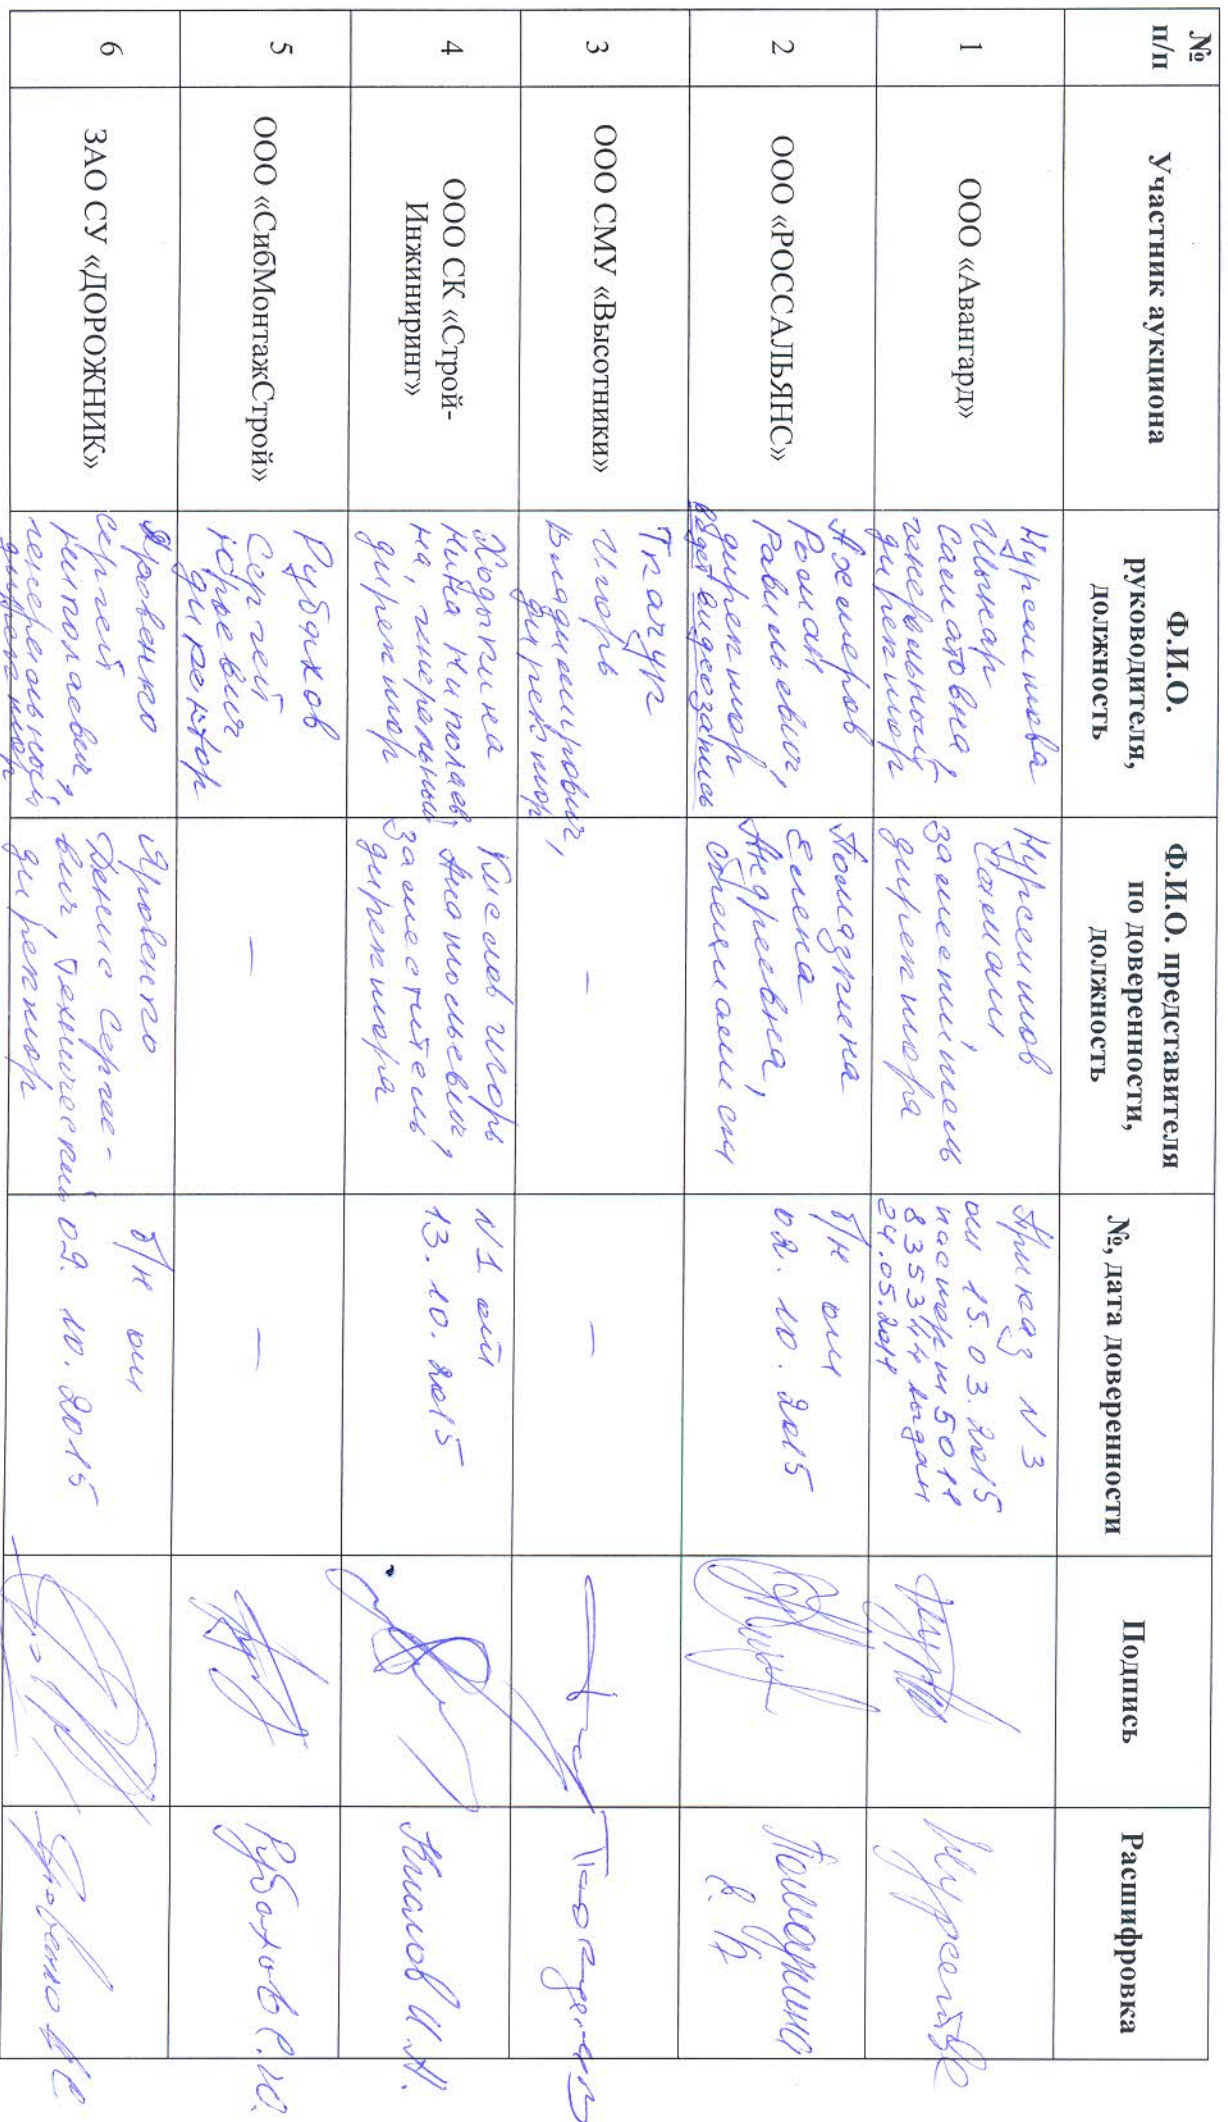 № п/п
Участник аукциона
Ф.И.О. руководителя, должность
Ф.И.О. представителя по доверенности, должность
№, дата доверенности
Подпись
Расшифровка
1
ООО «Авангард»
Нурсеитова
Саматовна,
генеральный
директор
Нурсеитов
заместитель
директора
Приказ N 3
от 15.03.2015
паспорт 5011
835344 выдан
24.05.2011
2
ООО «РОССАЛЬЯНС»
Ахмеров
Роман
Равильевич,
директор
ведет видеозапись
Помазкина
Елена
Андреевна,
б/н от
02.10.2015
Помазкина
3
ООО СМУ «Высотники»
Ткачук
Игорь
Владимирович,
директор
–
–
4
ООО СК «Строй-
Инжиниринг»
Ходыкина
Нина Николаев
на, генеральный
директор
Кислов Игорь
Анатольевич,
заместитель
директора
N 1 от
13.10.2015
Кислов И.А.
5
ООО «СибМонтажСтрой»
Рубахов
Сергей
Юрьевич
директор
–
–
Рубахов С.Ю.
6
ЗАО СУ «ДОРОЖНИК»
Яровенко
Сергей
Николаевич,
генеральный
директор
Яровенко
Денис Серге-
вич, технический
директор
б/н от
02.10.2015